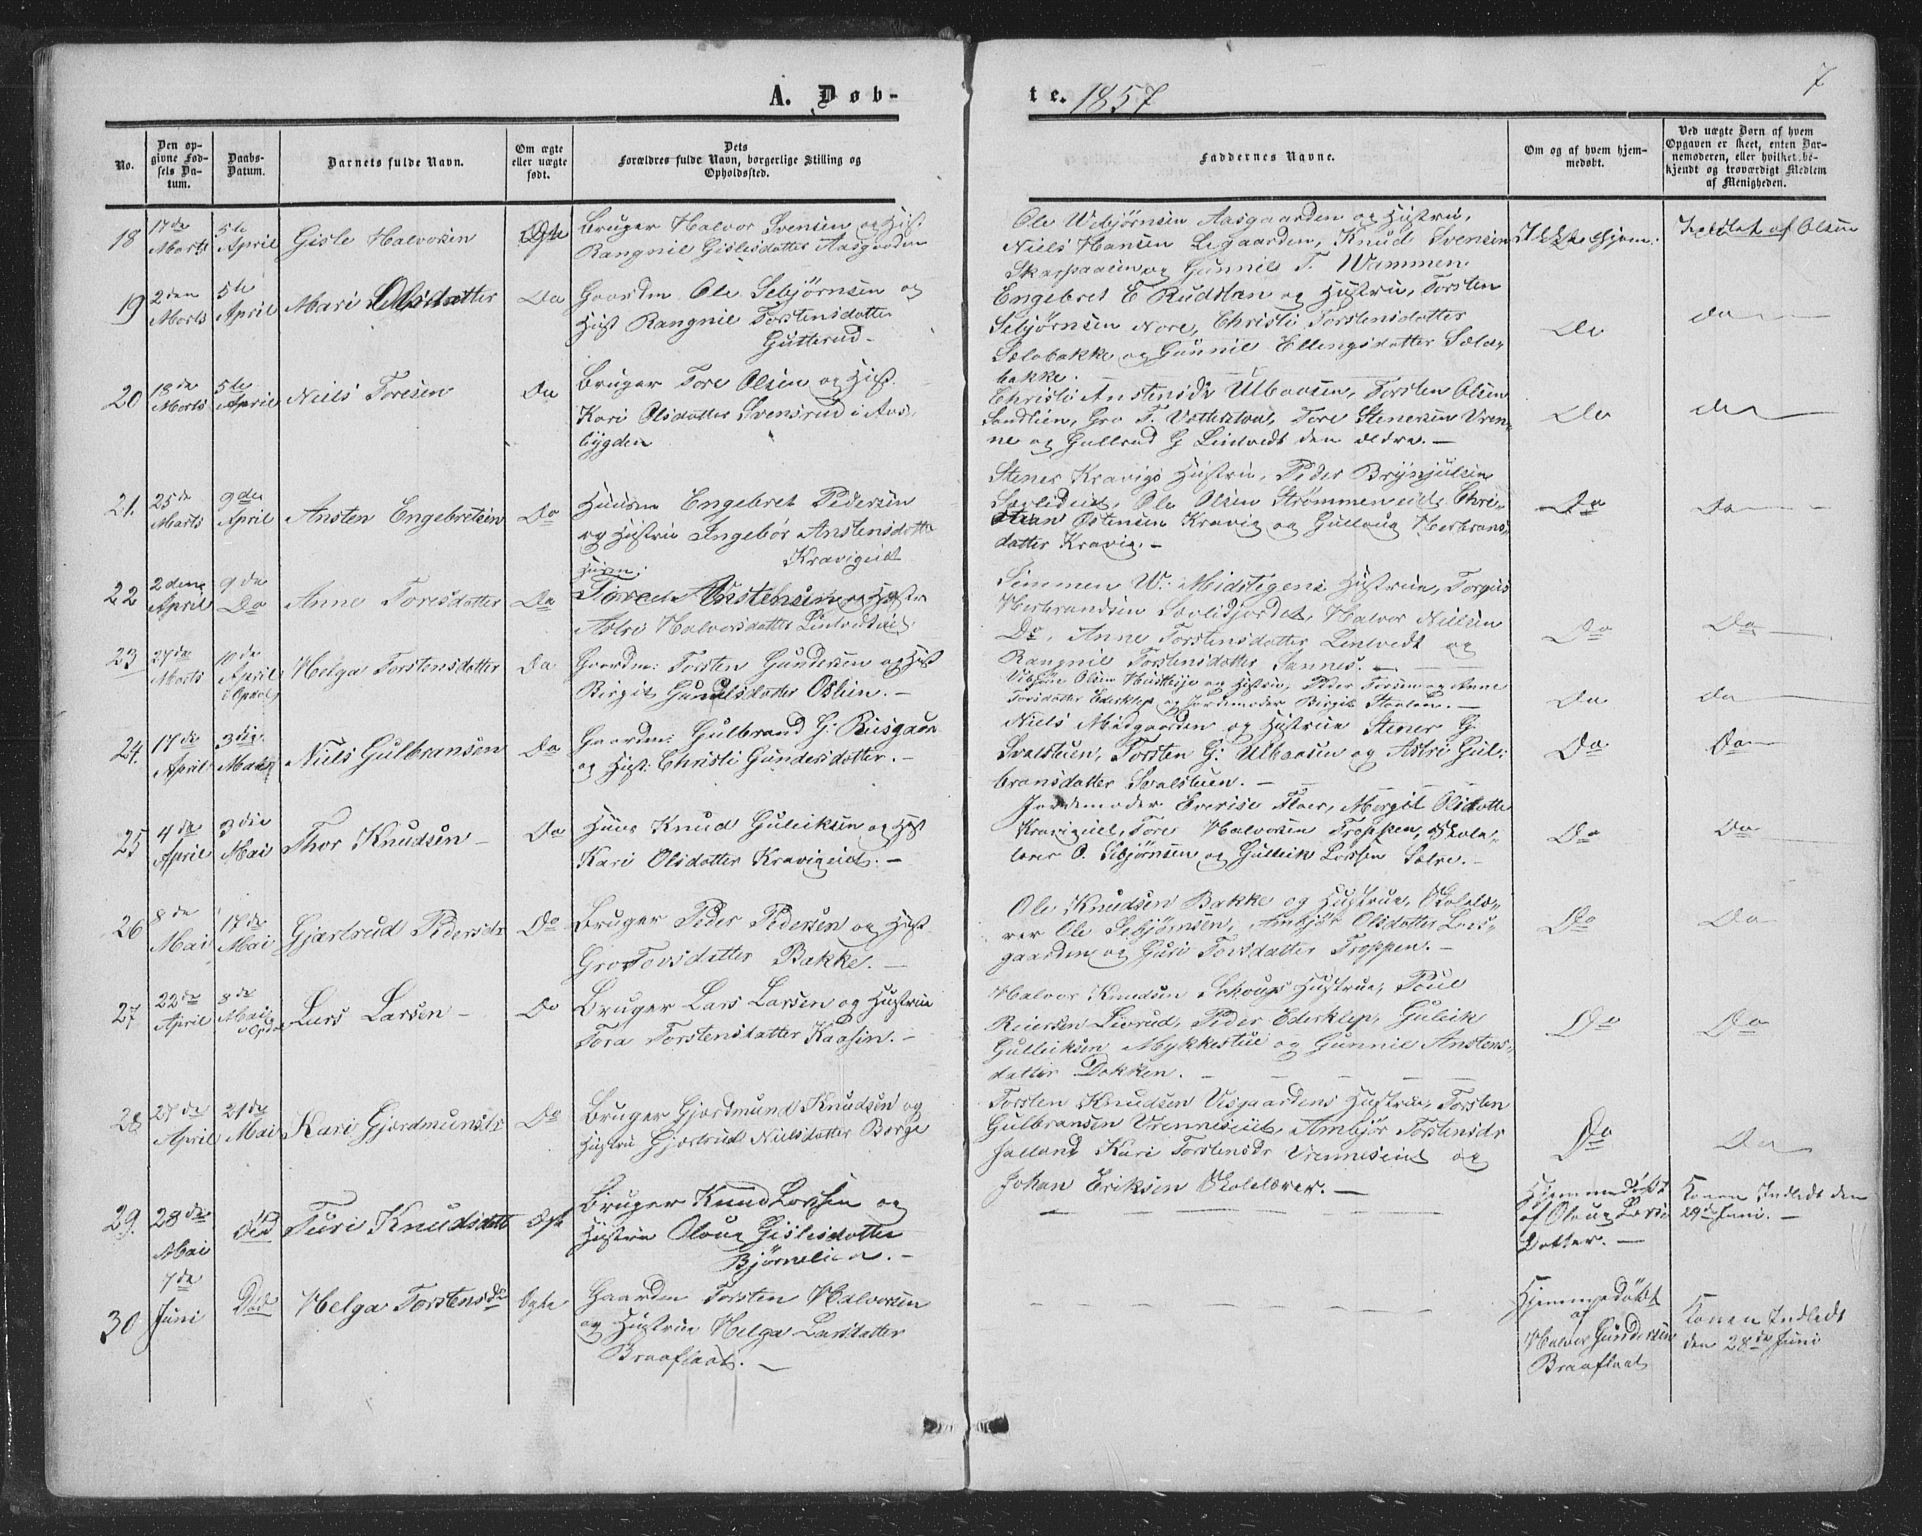 A. Døb-
te. 1857
7
No.
Den op-
givne Fød-
sels Da-
tum.
Daabs-
Datum.
Barnets fulde Navn.
Om ægte
eller uægte
født.
Dets
Forældres fulde Navn, borgerlige Stilling og
Opholdssted.
Faddernes Navne.
Om og af hvem hjem-
medøbt.
Ved uægte Børn af hvem
Opgaven er skeet, enten Bar-
nemoderen, eller hvilket be-
kjendt og troværdigt Medlem
af Menigheden.
18
17de
Marts
5te
April
Gisle Halvorsen
Ægte
Bruger Halvor Svensen og Hust
Rangnil Gislesdatter Aasgaarden
Ole Webjørnsen Aasgaarden og Hustru,
Niels Hansen Legaarden, Knud Svensen
Skarpaasen og Gunnil T. Wammen
Ikke Hjem.
af Olsen
19
2den
Marts
5te
April
Mari Olsdatter
Do
Gaardm Ole Sebjørnsen og
Hust Rangnil Torstensdatter
Gutterud.
Engebret E Rudstan og Hustru, Torsten
Sebjørnsen Nore, Christi Torstensdatter
Sælabakke og Gunnil Ellingsdatter Sæla-
bakke.
Do
do
20
13de
Marts
5te
April
Niels Toresen
Do
Bruger Tore Olsen og Hust.
Kari Olsdatter Svensrud i Aas-
bygden
Christi Anstensdr Ulbaasen, Torsten Olsen
Sandlien, Gro T. Tore Stenersen Vren-
ne og Gullrud G Lindvedt den ældre.
Do
do
21.
25de
Marts
9de
April
Ansten Engebretsen
Do
Huusm Engebret Pedersen
og Hustru Ingebor Anstensdatter
Kravigeidt
Stener Kravigs Hustru, Peder Brynjulsen
Ole Olsen Strømmeneidt, Chri-
stian Ostensen Kravig og Gullaug Herbrans-
datter Kravig.
Do
Do
22
2den
April
9de
Do
Anne Toresdatter
Do
Huusm:
Tore Anstensen og Hustru
Astri Halvorsdatter Lindvedteiet
Simmen W. Midstigens Hustrue, Torgus
Herbrandsen Sørlidjordet, Halvor Nielsen
Do, Anne Torstensdatter Lindvedt og
Rangnil Torstensdatter Sannes.
Do
Do
23
27de
Marts
10de
April
i Opdal
Helga Torstensdatter
Do
Gaardm: Torsten Gundersen og Hust
Birgit Gunulsdatter Oslien.
Olsen og Hustru, Peder Toresen og Anne
Torsdatter Ederklep og Jordemoder Birgit Staalen.
Do
do
24.
17de
April
3die
Mai
Niels Gulbransen
Do
Gaardm: Gulbrand G: Risgaar
og Hust: Christi Gundersdatter.
Niels Midgaarden og Hustrue Stener G
Svalstuen, Torsten G: Ulbaasen og Astri Gul-
bransdatter Svalstuen.
Do
Do
25
4de
April
3die
Mai
Thor Knudsen
Do
Huus Knud Guleiksen og Hust
Kari Olsdatter Kravigeidt.
Jordemoder Everise Floer, Mergit Olsdatter
Kravigeidt, Tore Halvorsen Froppen, Skole-
lærer O. Sebjørnsen og Gulleik Larsen Sælre.
Do
Do
26
8de
Mai
17de
Mai
Gjertrud Pedersdr
Do
Bruger Peder Pedersen og Hust
Gro Tovsdatter Bakke.
Ole Knudsen Bakke og Hustrue, Skolelæ-
rer Ole Sebjørnsen, Ambjør Olsdatter Lars-
gaarden og Guri Torsdatter Froppen.
Do
Do
27
22de
April
3de
Mai
Opdal
Lars Larsen
Do
Bruger Lars Larsen og Hustrue
Tora Torstensdatter Kaasin.
Halvor Knudsen Schougs Hustrue, Poul
Reiersen Livrud, Peder Ederklep, Guleik
Gulleiksen Mykkestue og Gunnil Anstens-
datter Dokken.
Do
Do
28
27de
April
21de
Mai
Kari Gjordmunsdr
Do
Bruger Gjordmund Knudsen og
Hustru Gjertrud Nielsdatter Borge
Torsten Knudsen Visgaardens Hustrue, Torsten
Gulbransen Vrenneseiet, Ambjør Torstensdr
Jalland Kari Torstensdr Vrenneseiet og
Johan Eriksen Skolelærer.
Do
Do
29.
28de
Mai
Død
Turi Knudsdatt
Ægte
Bruger Knud Larsen og
Hustru Olaug Gislesdatter
Bjørnelien.
Hjemmedøbt
af Olaug Larse
Datter.
Konen Indledt den
29de Juni.
30
7de
Juni
Død
Helga Torstensdr
Ægte
Gaardm Torsten Halvorsen
og Hustrue Helga Larsdatter
Braaflaat.
Hjemmedøbt
af
Halvor Gundersen
Braaflaat
Konen Indledt
den 28de Juni